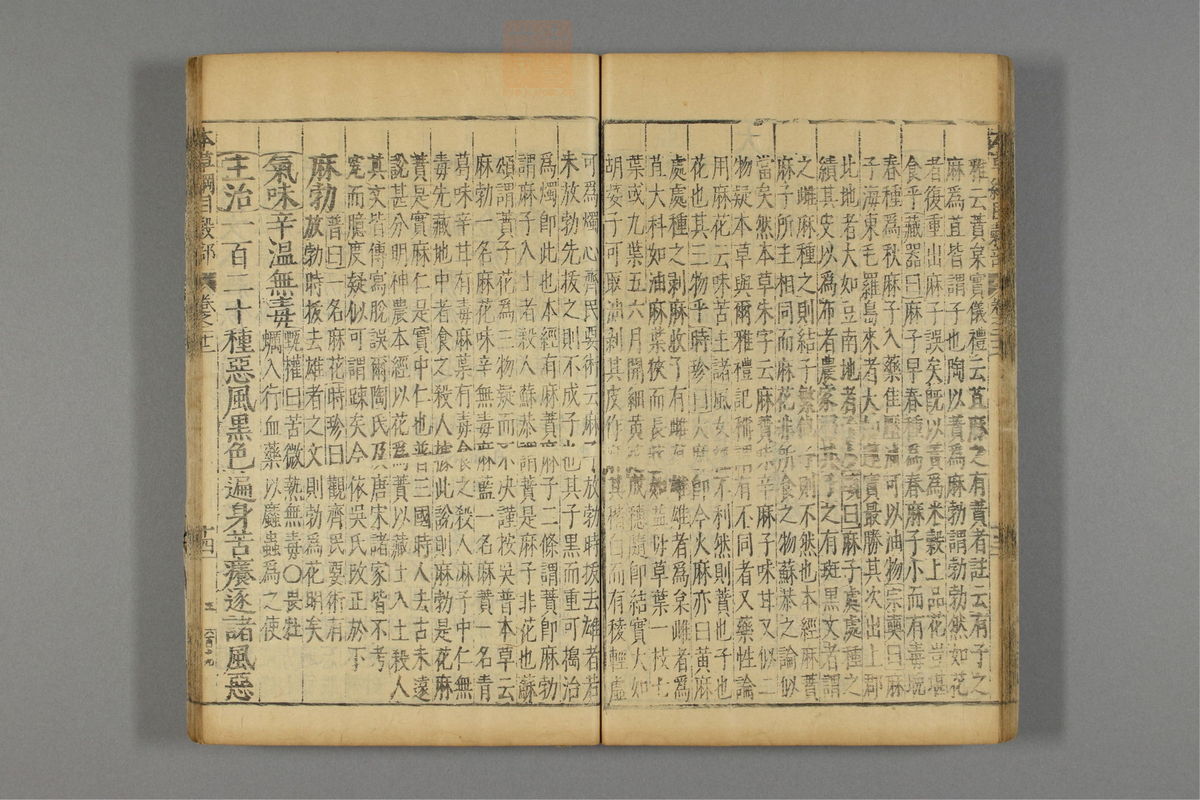 雅云䕸枲實儀禮云苴麻之有蕡者註云有子之
麻為苴皆謂子也陶以蕡為麻勃謂勃勃然如花
者後重出麻子誤矣既以蕡為米穀上品花豈堪
食乎藏器曰麻子早春種為春麻子小而有毒晚
春種為秋麻子入藥佳壓油可以油物宗奭曰麻
子海東毛羅島來者大如蓮實最勝其次出上郡
此地者大如豆南地者子小頌曰麻子處處種之
績其皮以為布者農家擇其子之有斑黑文者謂
之雌麻種之則結子繁他子則不然也本經麻蕡
麻子所主相同而麻花非所食之物蘇恭之論似
當矣然本草朱字云麻蕡味辛麻子味甘又似二
物疑本草與爾雅禮記稱謂有不同者又藥性論
用麻花云味苦主諸風女經不利然則蕡也子也
花也其三物乎時珍曰大麻即今火麻亦曰黃麻
處處種之剥麻收子有雌有雄雄者為枲雌者為
苴大科如油麻葉狹而長狀如益母草葉一枝七
葉或九葉五六月開細黃花成穗隨即結實大如
胡荽子可取油剥其皮作麻其稭白而有稜輕虚
可為燭心齊民要術云麻子放勃時拔去雄者若
未放勃先拔之則不成子也其子黑而重可搗治
為燭即此也本經有麻蕡麻子二條謂蕡即麻勃
謂麻子入土者殺人蘇恭謂蕡是麻子非花也蘇
頌謂蕡子花為三物疑而不决謹按吳普本草云
麻勃一名麻花味辛無毒麻藍一名麻蕡一名青
葛味辛甘有毒麻葉有毒食之殺人麻子中仁無
毒先藏地中者食之殺人據此說則麻勃是花麻
蕡是實麻仁是實中仁也普三國時人去古未遠
說甚分明神農本經以花為蕡以藏土入土殺人
其文皆傳寫脫誤爾陶氏及唐宋諸家皆不考
究而臆度疑似可謂疎矣今依吳氏改正於下
麻勃普曰一名麻花時珍曰觀齊民要術有
放勃時拔去雄者之文則勃為花明矣
氣味辛溫無毒甄權曰苦微熱無毒〇畏牡
蠣入行血藥以䗪蟲為之使
主治一百二十種惡風黑色遍身苦癢逐諸風惡
本草綱目穀部 卷之廿二 十四